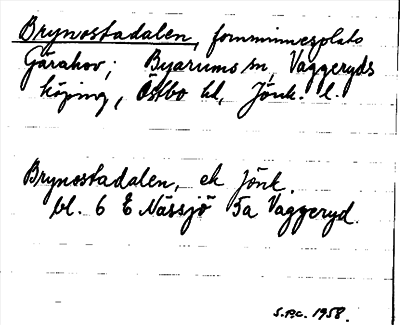 Brynostadalen, fornminnesplats
Gärahov; Byarums sn, Vaggeryds
köping, Östbo hd, Jönk. l.
Brynostadalen, ek Jönk.
bl. 6 E Nässjö 5a Vaggeryd.
S.P.C. 1958.